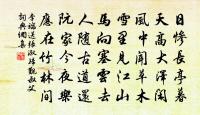 日慘長亭暮
天高大澤閑
風中聞草木
雪里見江山
馬向塞雲去
人隨古道還
阮家今夜樂
應在竹林間
李端送張淑歸覲叔父
詞典網集